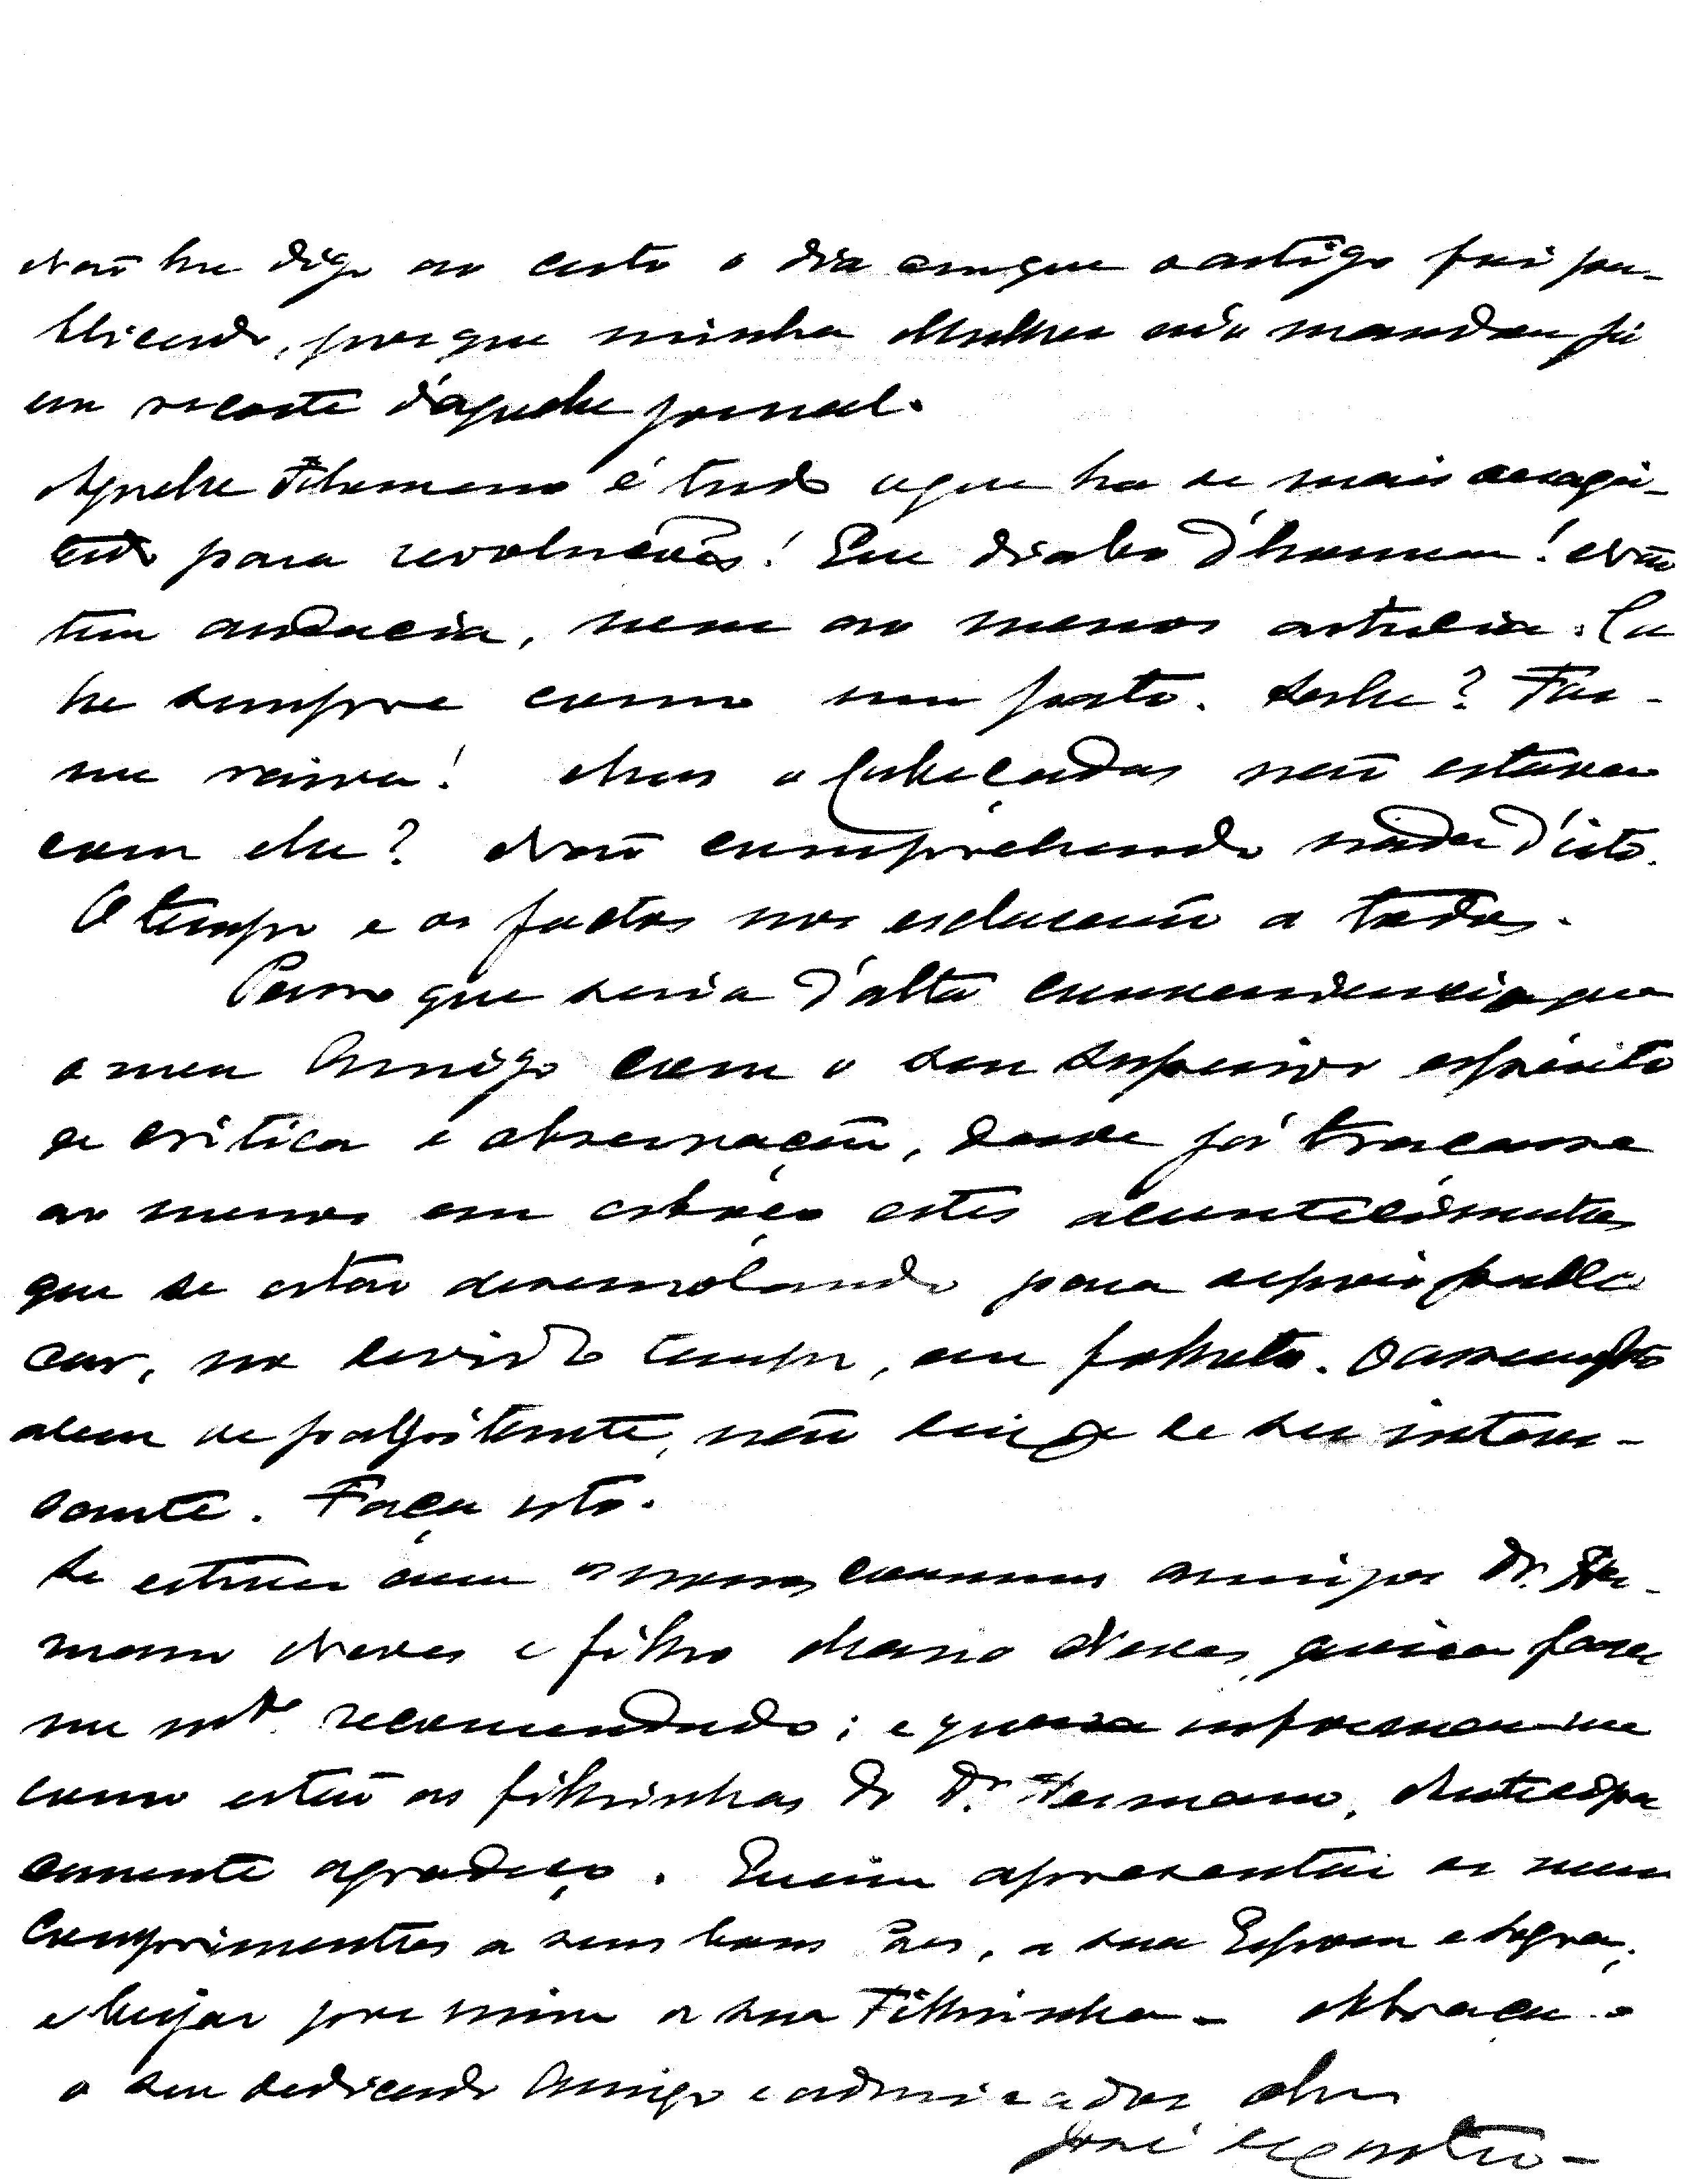 Não lhe digo ao certo o dia em que o artigo foi pu-
blicado, porque minha Mulher só mandou
um recorte d'aquelle jornal.
Aquelle Filomeno é tudo o que ha de mais desagei-
tado para revoluções! Que diabo d'homem! Não
tem audacia, nem ao menos astucia. Ca
he sempre como um pato. Tolhe? Faz-
me raiva! Mas o Cabeçadas não estava
com elle? Não comprehendo nada d'isto.
O tempo e os factos nos esclarecerão a todos.
Penso que seria d'alta conveniencia que
o meu Amigo com o seu superior espirito
de critica e observação, desde já traçasse
ao menos em esboço estes acontecimentos
que se estão desenrolando para depois publi
car, no devido tempo, em folheto. O assumpto
alem de palpitante, não deixa de ser interes-
sante. Faça isto.
Se estiver com os nossos communs amigos Dr. Her-
mano Neves e filho Mario Neves, queira fazer
me mto recomendado; e queira informar-me
como estão as filhinhas do Dr. Hermano. Antecipa
damente agradeço. Queira apresentar os meus
Comprimentos a seus bons Paes, a sua Esposa e Sogra;
e beijar por mim a sua Filhinha. Abraça-o
o seu dedicado Amigo e admirador
José de Castro -